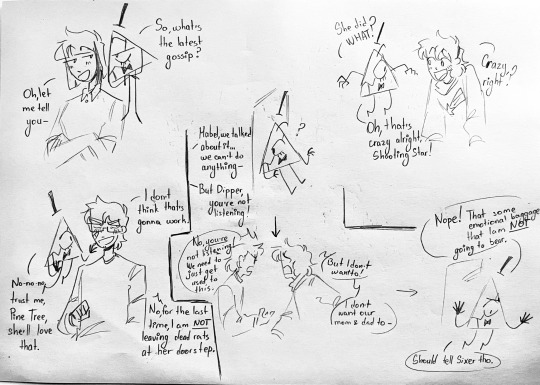 So, what's
the latest
gossip?
Oh, let
me tell
you-
She did
WHAT?
Crazy,
right?
Oh, that's
crazy alright,
Shooting Star!
Mabel, we talked
about it...
we can't do
anything-
But Dipper,
you're not
listening!
?
I don't
think that's
gonna work.
No-no-no,
trust me,
Pine Tree,
she'll love
that.
No, for the last
time, I am NOT
leaving dead rats
at her doorstep.
No, you're
not listening
We need to
just get
used to
this.
But I don't
wanna!
I don't
want our
mom & dad to-
Nope! That some
emotional baggage
that I am NOT
going to bear.
Should tell Sixer tho.